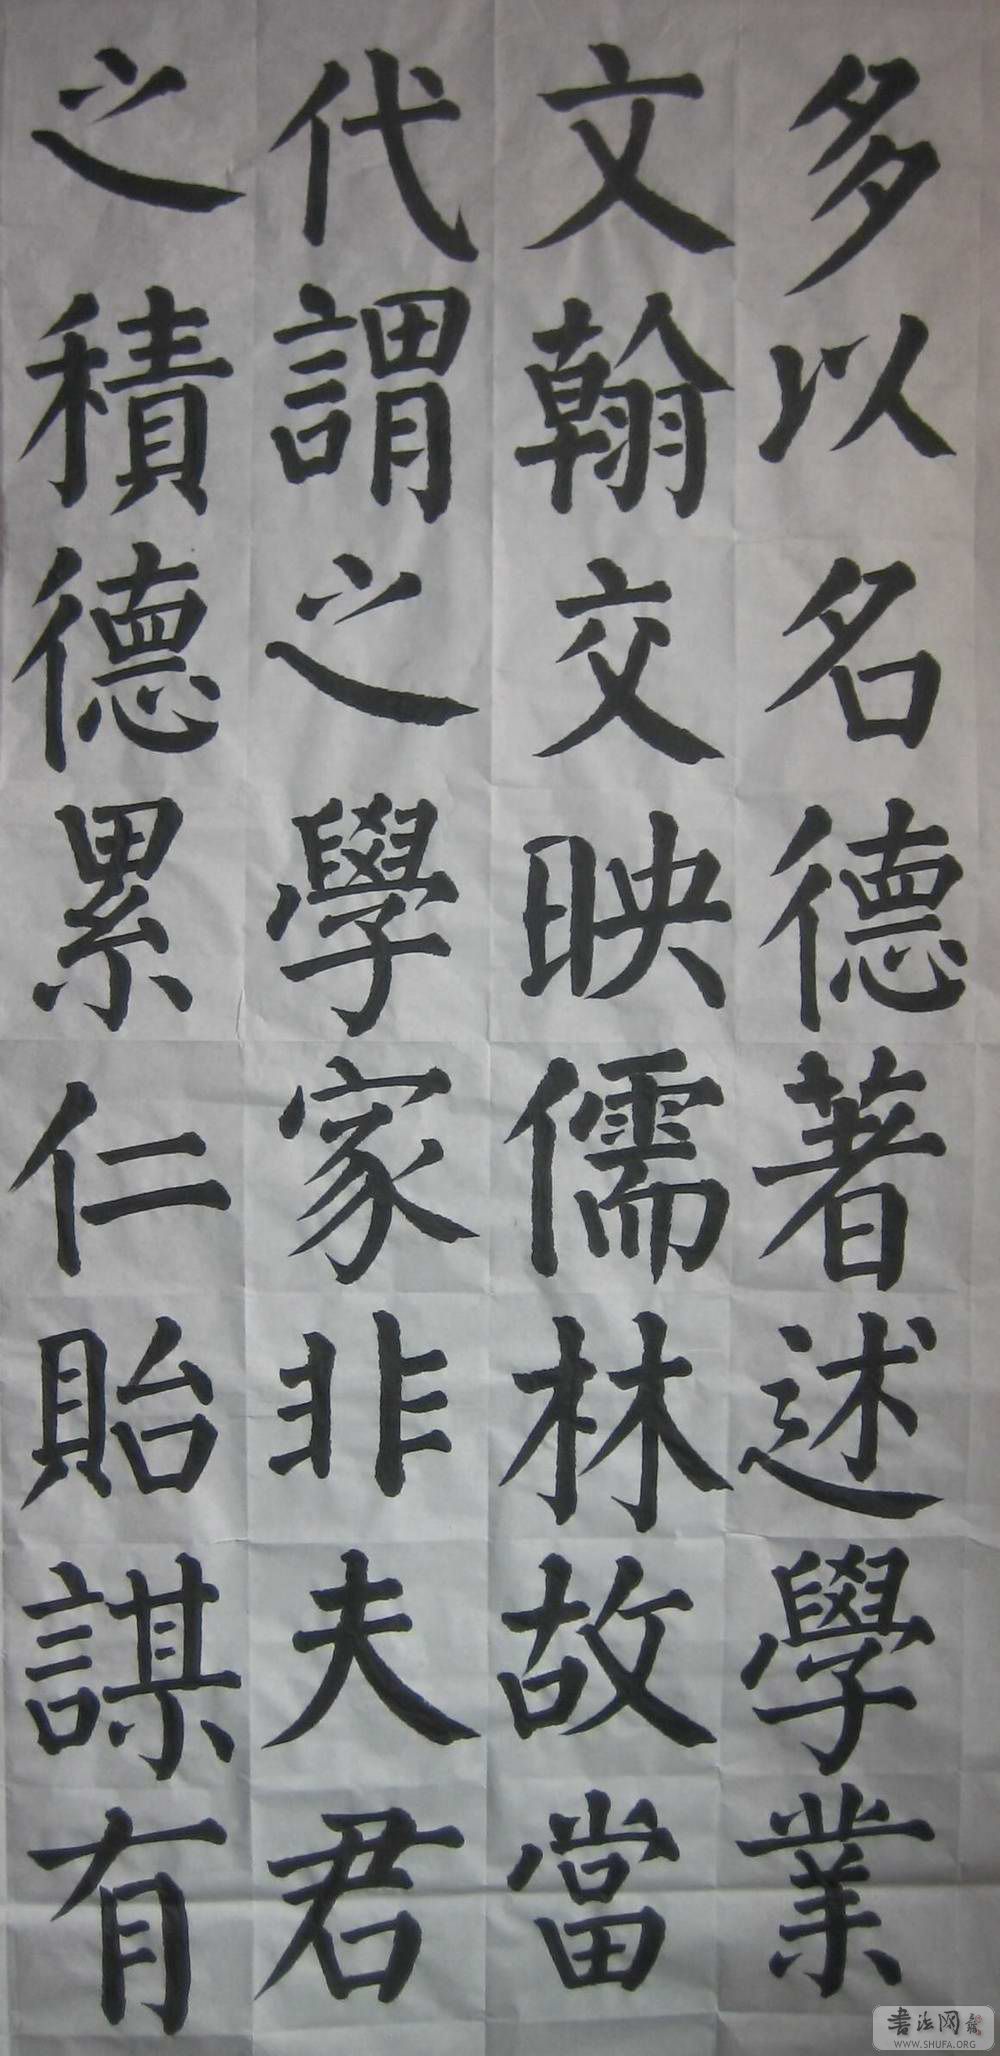 多以名德著述學業
文翰交映儒林故當
代謂之學家非夫君
之積德累仁貽謀有
書法网
WWW.SHUFA.ORG